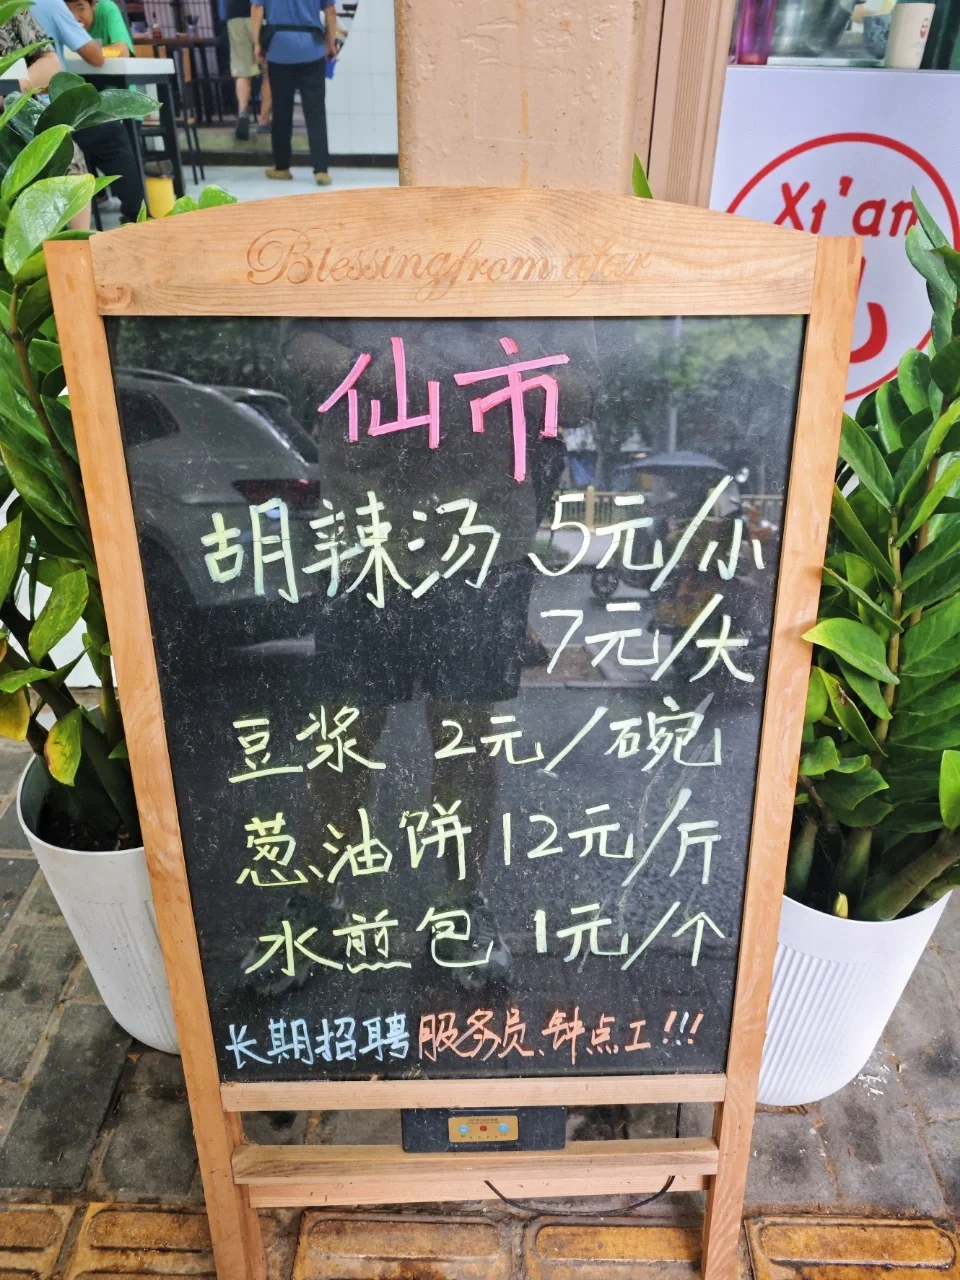 Xi'an
Blessing from afar
仙市
胡辣汤 5元/小
7元/大
豆浆 2元/碗
葱油饼 12元/斤
水煎包 1元/个
长期招聘服务员、钟点工!!!